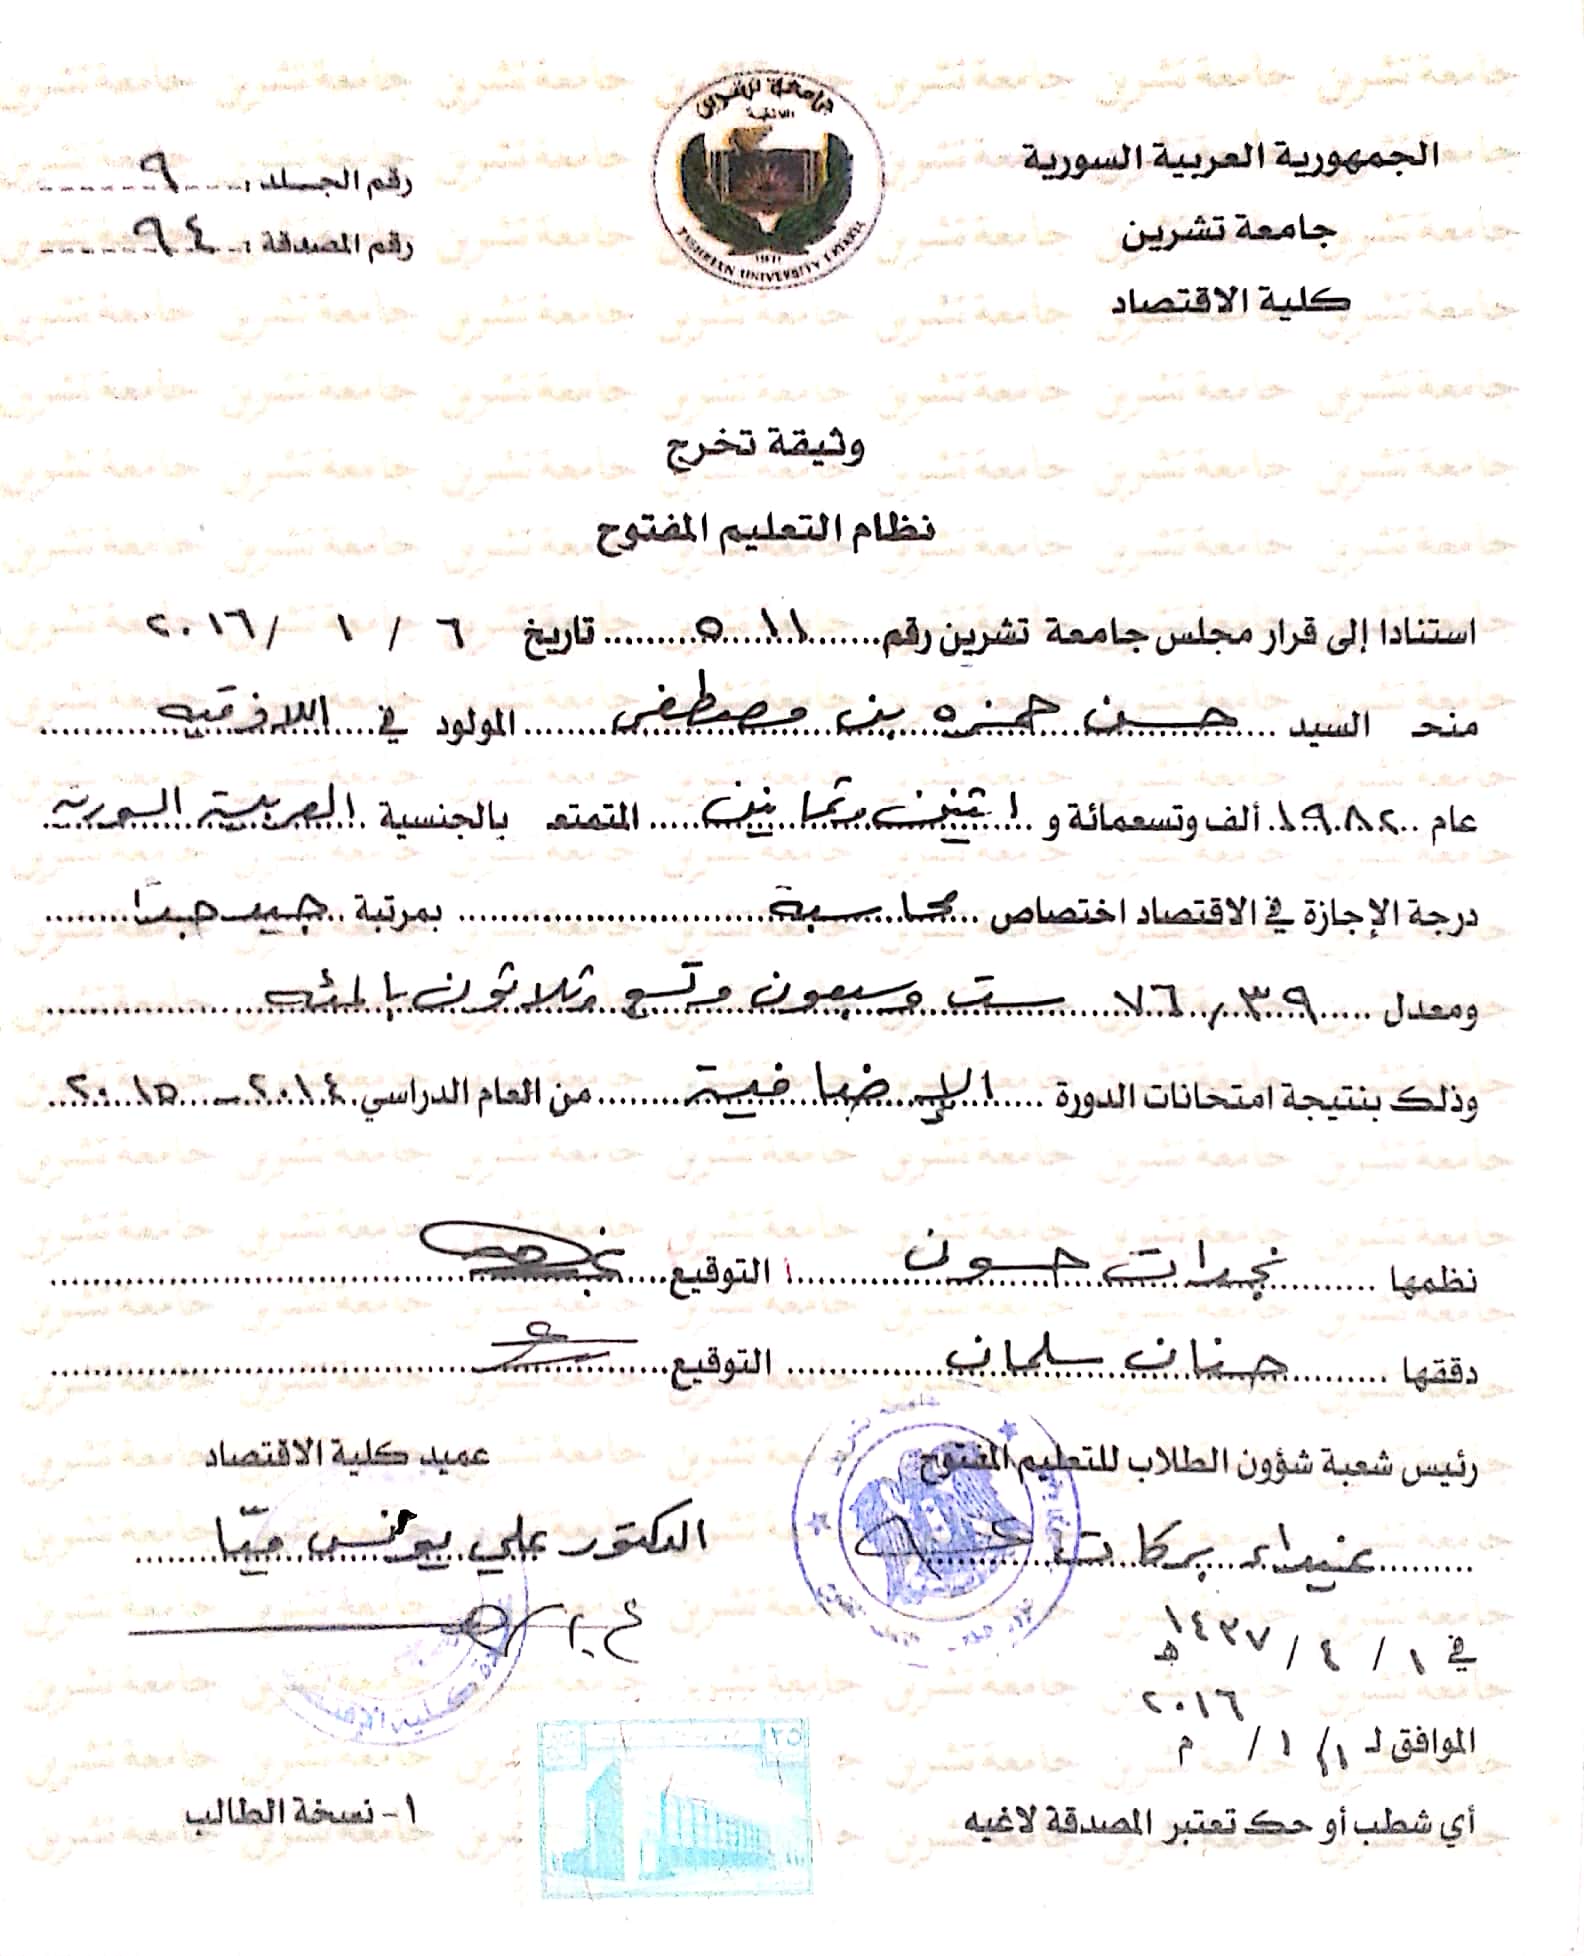 الجمهورية العربية السورية
جامعة تشرين
كلية الاقتصاد
جامعة تشرين
اللاذقية
TISHREEN UNIVERSITY LATAKIA
رقم الجلد : ٩
رقم المصدقة : ٩٤
وثيقة تخرج
نظام التعليم المفتوح
استنادا إلى قرار مجلس جامعة تشرين رقم ٥١١ تاريخ ٦ / ١ / ٢٠١٦
منح السيد حسن حمزه بن مصطفى المولود في اللاذقيه
عام ١٩٨٢ ألف وتسعمائة و اثنين وثمانين المتمتع بالجنسية العربية السورية
درجة الإجازة في الاقتصاد اختصاص محاسبة بمرتبة جيد جداً
ومعدل ٧٦,٣٩ ست وسبعون وتسع وثلاثون بالمئه
وذلك بنتيجة امتحانات الدورة الإضافية من العام الدراسي ٢٠١٤ - ٢٠١٥
نظمها نجدات حسون التوقيع
دققها حنان سلمان التوقيع
رئيس شعبة شؤون الطلاب للتعليم المفتوح
عميد كلية الاقتصاد
بركات
الدكتور علي يونس ميّا
في ١ / ٤ / ١٤٣٧ هـ
الموافق لـ / ١ / ٢٠١٦ م
٢٥
أي شطب أو حك تعتبر المصدقة لاغيه
١- نسخة الطالب